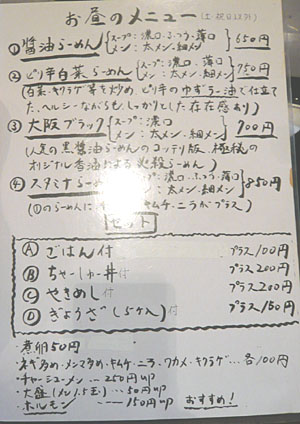 お昼のメニュー(土・祝日以外)
① 醤油らーめん スープ:濃口、ふつう、薄口 650円
メン:太メン・細メン
② ピリ辛白菜らーめん スープ:濃口、薄口 750円
メン:太メン・細メン
白菜・キクラゲ等を炒め、ピリ辛のゆずラー油で仕立てた、ヘルシーながらもしっかりとした存在感あり
③ 大阪ブラック スープ:濃口 900円
メン:太メン・細メン
(人気の黒醤油らーめんのコッテリ版、極秘の
オリジナル香油による必殺らーめん)
④ スタミナらーめん スープ:濃口、ふつう、薄口 850円
メン:太メン・細メン
(①のらーめんに、キムチ・ニラがプラス)
セット
Ⓐ ごはん付 プラス100円
Ⓑ ちゃーしゅー丼付 プラス200円
Ⓒ やきめし付 プラス200円
Ⓓ ぎょうざ(5ケ入)付 プラス150円
・煮卵50円
・ネギ多め・メンマ多め・キムチ・ニラ・ワカメ・キクラゲ…各100円
・チャーシューメン…250円up
・大盛(メン1.5玉)…50円up
・ホルモン ――150円up おすすめ!